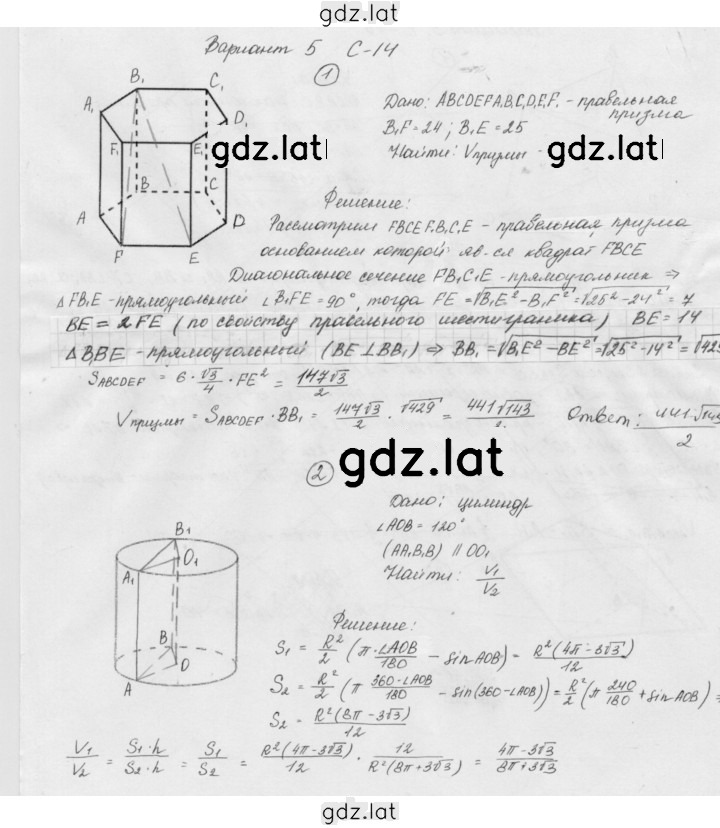 gdz.lat
Вариант 5 С-14
1
B₁ C₁ A₁ D₁ F₁ E₁ B C A D F E
Дано: ABCDEFA₁B₁C₁D₁E₁F₁ - правельная
призма
B₁F = 24 ; B₁E = 25
Найти: Vпризмы -
gdz.lat
gdz.lat
Решение:
Рассмотрим FBCEF₁B₁C₁E₁ - правельная призма
основанием которой яв-ся квадрат FBCE
Диагональное сечение FB₁C₁E - прямоугольник ⇒
△FB₁E - прямоугольный ∠B₁FE = 90°, тогда FE = √B₁E² - B₁F² = √25² - 24² = 7
BE = 2FE (по свойству правельного шестигранника) BE = 14
△B₁BE - прямоугольный (BE ⊥ BB₁) ⇒ BB₁ = √B₁E² - BE² = √25² - 14² = √429
S ABCDEF = 6 · √3/4 · FE² = 147√3/2
Vпризмы = S ABCDEF · BB₁ = 147√3/2 · √429 = 441√143/2 Ответ: 441·√143/2
gdz.lat
2
Дано: цилиндр
∠AOB = 120°
(AA₁B₁B) || OO₁
Найти: V₁/V₂
B₁ O₁ A₁ B O A
Решение:
S₁ = R²/2 (π · ∠AOB/180 - sin AOB) = R²(4π - 3√3)/12
S₂ = R²/2 (π 360 - ∠AOB/180 - sin(360 - ∠AOB)) = R²/2 (π 240/180 + sin AOB) =
S₂ = R²(8π - 3√3)/12
V₁/V₂ = S₁·h/S₂·h = S₁/S₂ = R²(4π - 3√3)/12 · 12/R²(8π + 3√3) = 4π - 3√3/8π + 3√3
gdz.lat